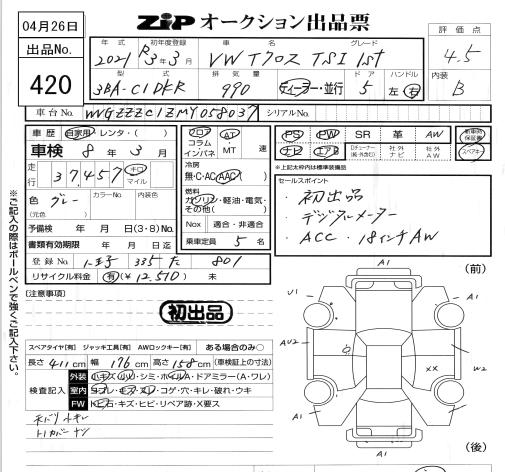 04月26日
ZiP オークション出品票
出品No.
420
年式 初年度登録 車名 グレード
2021 R3年3月 VW Tクロス TSI 1st
型式 排気量 ドア ハンドル
3BA-C1DKR 990 ディーラー・並行 5 左 右
評価点
4.5
内装
B
車台No. WVGZZZC1ZMY058037 シリアルNo.
車歴 自家用・レンタ・( )
車検 8年3月
走行 37,457 キロ マイル
色 グレー カラーNo. 内装色
(元色)
予備検 年 月 日(3・8)No.
書類有効期限 年 月 日迄
登録No. 335 た 801
リサイクル料金 有(¥12,510) 未
フロア コラム インパネ AT・MT 速
冷房
無・C・AC・AAC
燃料
ガソリン・軽油・電気・その他( )
Nox 適合・非適合
乗車定員 5名
PS PW SR 革 AW 新車時保証書
ナビ エアB Dチューナー(純・外含む) 社外ナビ 社外AW スペアキー
*上記太枠内は標準装備品
セールスポイント
・初出品
・デジタルメーター
・ACC・18インチAW
※ご記入の際はボールペンで強くご記入下さい。
[注意事項]
初出品
スペアタイヤ[有] ジャッキ工具[有] AWロックキー[有] ある場合のみ○
長さ 411cm 幅 176cm 高さ 158cm (車検証上の寸法)
検査記入
外装 小キズ・凹・シミ・ホイルA・ドアミラー(A・ワレ)
室内 ヨゴレ・キズ・スレ・コゲ・穴・キレ・破れ・ウキ
FW トビ石・キズ・ヒビ・リペア跡・X要ス
天バリ小キレ
トノカバーナシ
(前)
A1
U1
A1
AU2
XX
W2
A1
A1
A1
(後)